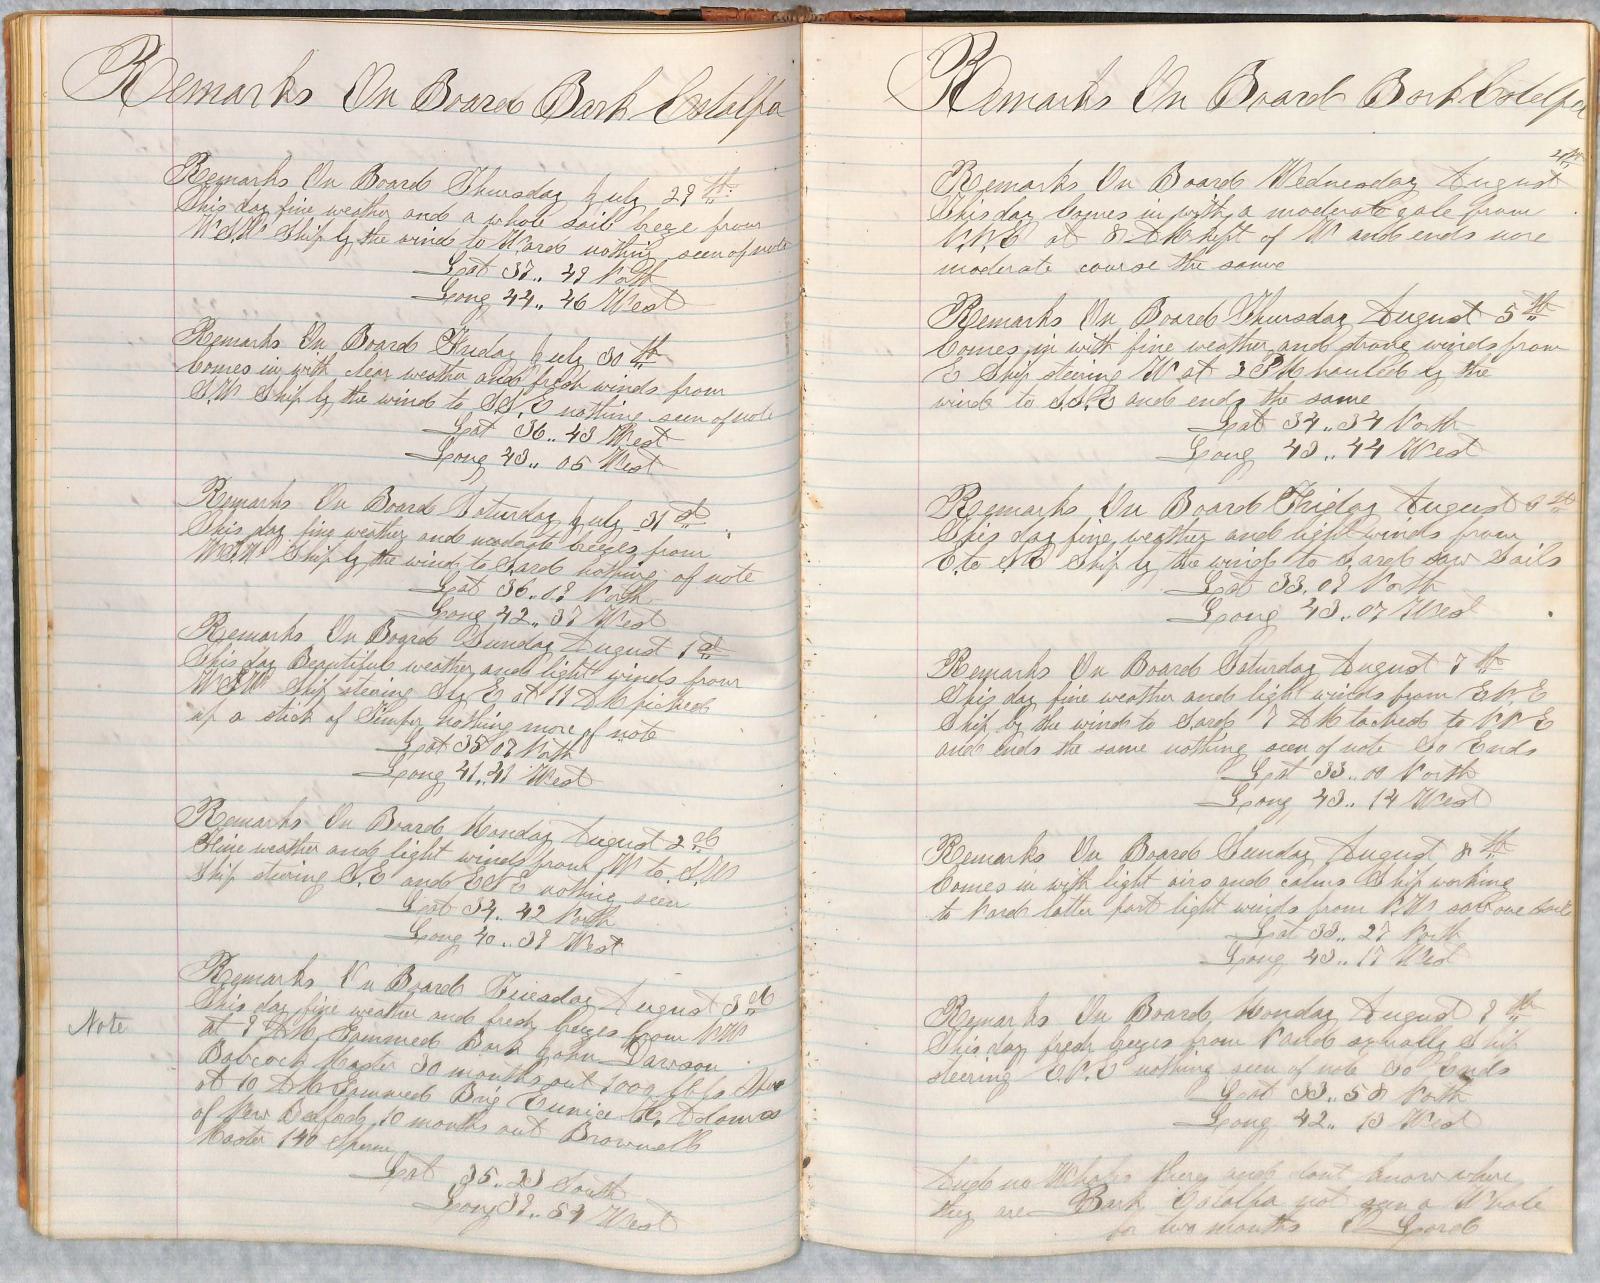 Remarks On Board Bark Catalpa
Remarks On Board Thursday July 29th
This day fine weather and a whole sail breeze from
WSW Ship by the wind to Ward nothing seen of note
Lat 37.. 49 North
Long 44.. 46 West
Remarks On Board Friday July 30th
Comes in with clear weather and fresh winds from
S.W Ship by the wind to SS.E nothing seen of note
Lat 36.. 43 West
Long 43.. 05 West
Remarks On Board Saturday July 31st
This day fine weather and moderate breezes from
WSW Ship by the wind to Sard nothing of note
Lat 36..09 North
Long 42.. 37 West
Remarks On Board Sunday August 1st
This day Beautiful weather and light winds from
WSW Ship stering S by E at 11 AM picked
up a stick of Timber nothing more of note
Lat 35 07 North
Long 41..41 West
Remarks On Board Monday August 2d
Fine weather and light winds from W to S.W
Ship stering S.E and ESE nothing seen
Lat 34.. 42 North
Long 40.. 39 West
Remarks On Board Tuesday August 3d
This day fine weather and fresh breezes from NW
Note
at 9 AM Gammed Bark John Dawson
Babcock Master 30 months out 1000 bbls
at 10 AM Gammed Brig Eunice H. Adams
of New Bedford 10 months out Brownell
Master 140 Sperm
Lat 35.. 23 South
Long 39.. 54 West
Remarks On Board Bark Catalpa
4th
Remarks On Board Wednesday August
This day Comes in with a moderate gale from
N.N.E at 8 AM kept of W and ends more
moderate course the same
Remarks On Board Thursday August 5th
Comes in with fine weather and strong winds from
E Ship steering W at 3 PM hauled by the
wind to S.S.E and ends the same
Lat 34.. 34 North
Long 43.. 44 West
Remarks On Board Friday August 6th
This day fine weather and light winds from
E. to N.E Ship by the wind to Sard saw Sails
Lat 33. 09 North
Long 43.. 07 West
Remarks On Board Saturday August 7th
This day fine weather and light winds from ENE
Ship by the wind to Sard 7 AM tacked to NNE
and ends the same nothing seen of note So Ends
Lat 33.. 00 North
Long 43.. 14 West
Remarks On Board Sunday August 8th
Comes in with light airs and calms Ship working
to Nard latter part light winds from N.W saw one Sail
Lat 33.. 27 North
Long 43.. 17 West
Remarks On Board Monday August 9th
This day fresh breezes from Nard squally Ship
steering E.N.E nothing seen of note So Ends
Lat 33.. 58 North
Long 42.. 13 West
And no Whales here and dont know where
they are Bark Catalpa not seen a Whale
for two months Lord